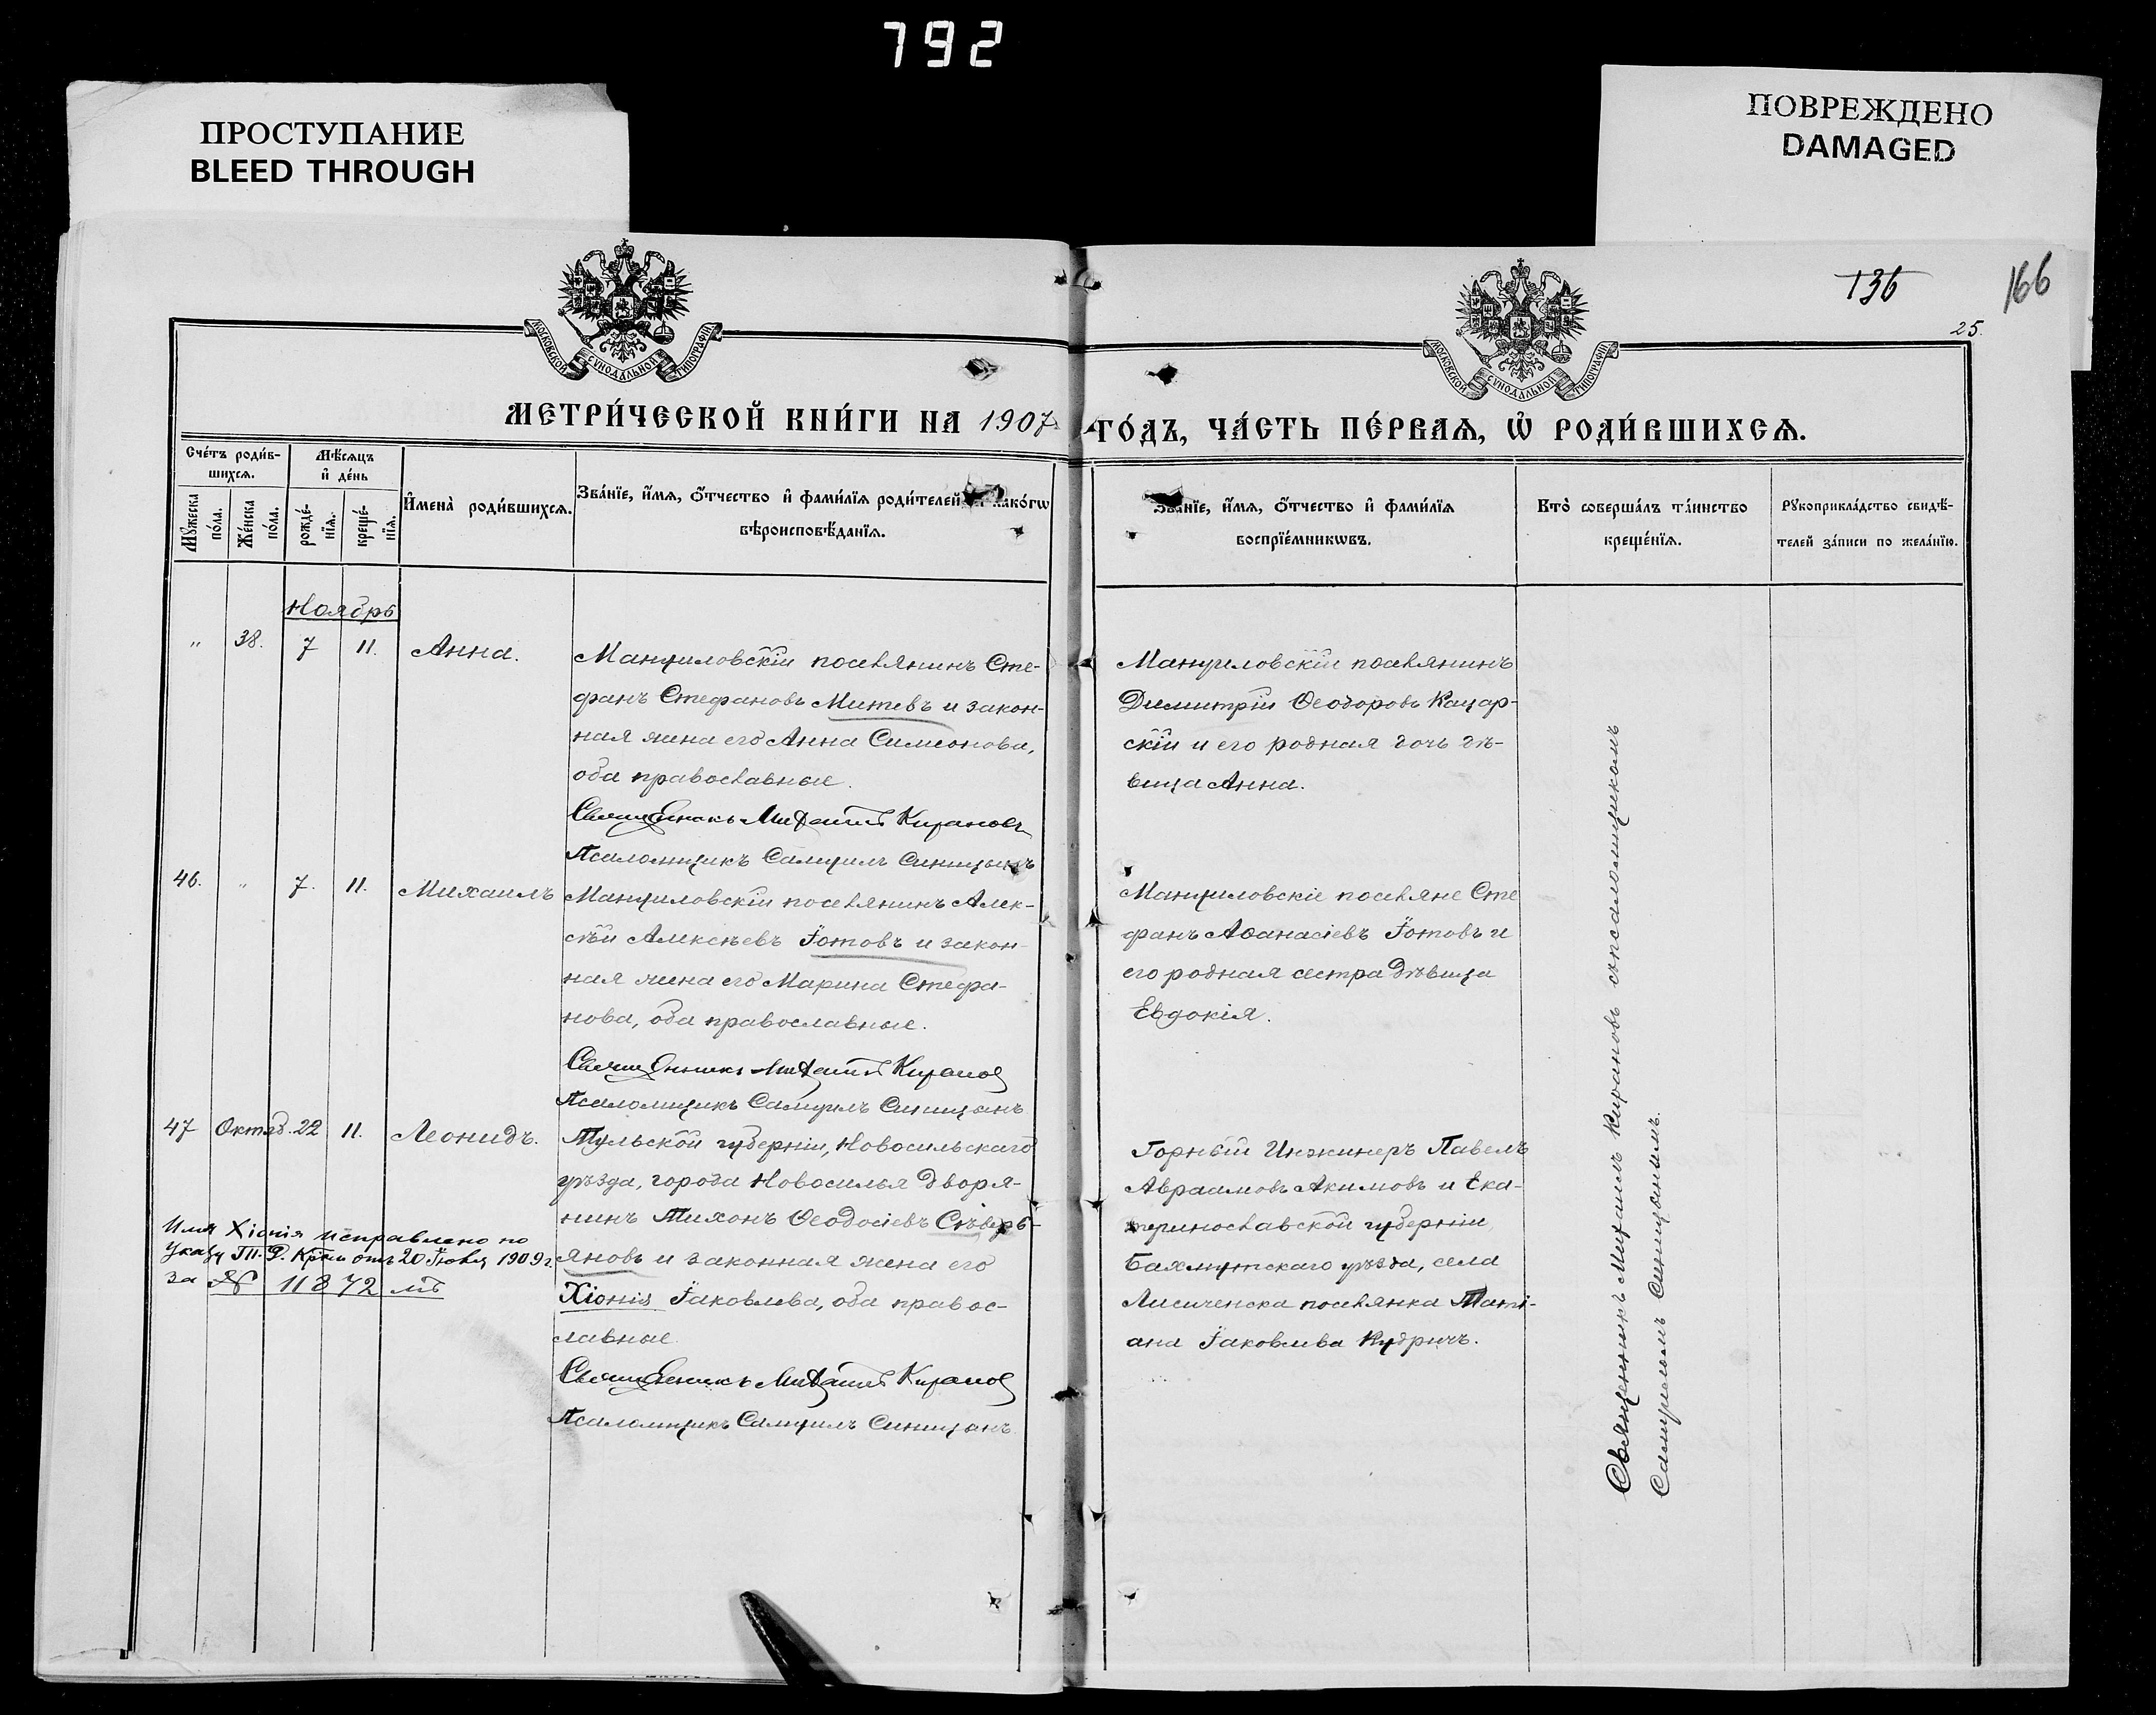 792
ПРОСТУПАНИЕ
BLEED THROUGH
ПОВРЕЖДЕНО
DAMAGED
136
166
25.
МОСКОВСКОЙ СѴНОДАЛЬНОЙ ТИПОГРАФІИ
МОСКОВСКОЙ СѴНОДАЛЬНОЙ ТИПОГРАФІИ
МЕТРИ́ЧЕСКОЙ КНИ́ГИ НА 1907
ГО́ДЪ, ЧА́СТЬ ПЕ́РВАЯ, Ѽ РОДИ́ВШИХСЯ.
Сче́тъ роди́в-
шихся.
Мꙋжеска по́ла.
Же́нска по́ла.
Мѣ́сяцъ
и҆ де́нь
рожде́-
нїя.
креще́-
нїя.
И҆мена̀ роди́вшихся.
Зва́нїе, и҆́мя, ѻ҆́тчество и҆ фами́лїя роди́телей како́гѡ
вѣроисповѣ́данїя.
Зва́нїе, и҆́мя, ѻ҆́тчество и҆ фами́лїя
воспрїе́мникѡвъ.
Кто̀ соверша́лъ та́инство
креще́нїя.
Рꙋкоприкла́дство свидѣ́-
телей за́писи по жела́нїю.
Ноябрь
" 38. 7 11. Анна.
Мануиловскій поселянинъ Сте-
фанъ Стефановъ Митевъ и закон-
ная жена его Анна Симеонова,
оба православные.
Священникъ Михаилъ Кирановъ
Псаломщикъ Самуилъ Синицынъ
Мануиловскій поселянинъ
Димитрій Ѳеодоровъ Кацар-
скій и его родная дочь дѣ-
вица Анна.
46. " 7. 11. Михаилъ
Мануиловскій поселянинъ Алек-
сѣй Алексѣевъ Іотовъ и закон-
ная жена его Марина Стефа-
нова, оба православные.
Священникъ Михаилъ Кирановъ
Псаломщикъ Самуилъ Синицынъ
Мануиловскіе поселяне Сте
фанъ Аѳанасіевъ Іотовъ и
его родная сестра дѣвица
Евдокія.
47 Октяб. 22 11. Леонидъ.
Тульской губерніи, Новосильскаго
уѣзда, города Новосилья дворя-
нинъ Тихонъ Ѳеодосіевъ Сѣверь-
яновъ и законная жена его
Хіонія Іаковлева, оба правос-
лавные.
Священникъ Михаилъ Кирановъ
Псаломщикъ Самуилъ Синицынъ
Имя Хіонія исправлено по
указу отъ 20 Іюля 1909 г.
за № 11872 мъ
Горный Инжинеръ Павелъ
Авраамовъ Акимовъ и Ека-
теринославской губерніи
Бахмутскаго уѣзда, села
Лисиченска поселянка Таті-
ана Іаковлева Кудричъ.
Священникъ Михаилъ Кирановъ съ псаломщикомъ
Самуиломъ Синицынымъ.